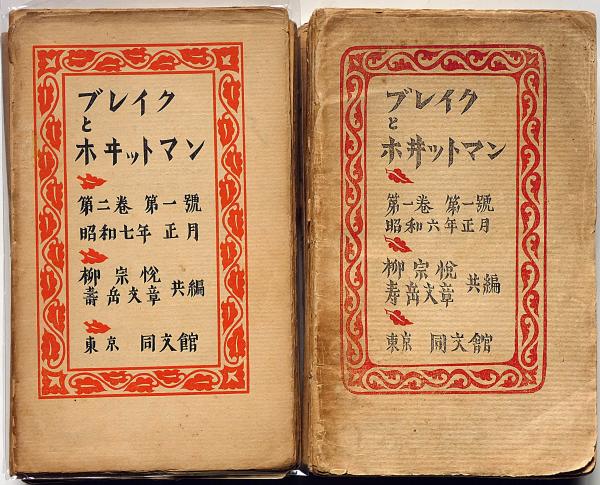 ブレイク
と
ホヰットマン
第二卷 第一號
昭和七年 正月
柳宗悦
壽岳文章 共編
東京 同文館
ブレイク
と
ホヰットマン
第一卷 第一號
昭和六年正月
柳宗悅
寿岳文章 共編
東京 同文館